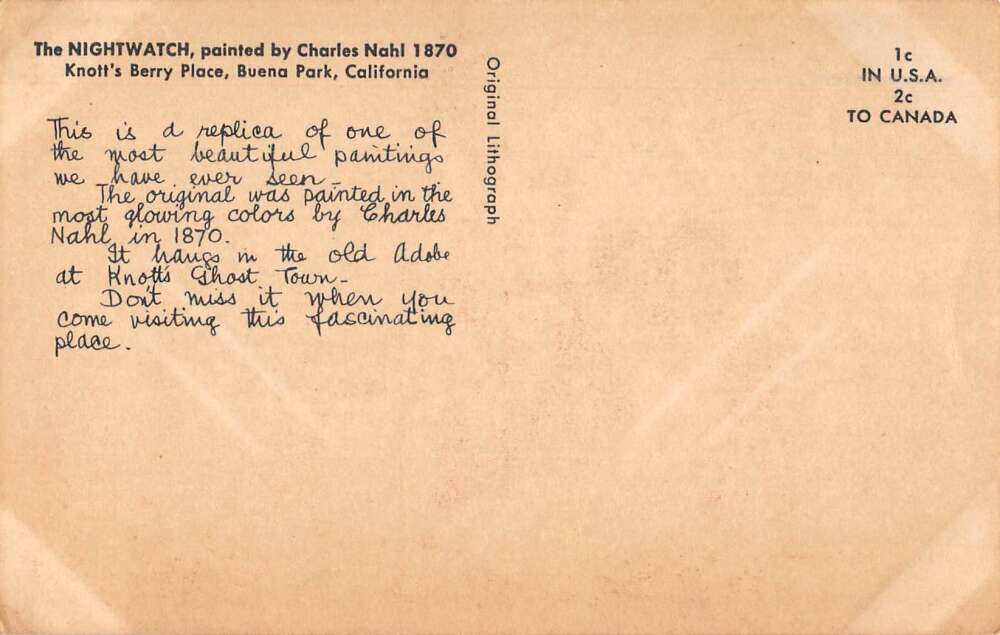 The NIGHTWATCH, painted by Charles Nahl 1870
Knott's Berry Place, Buena Park, California
This is a replica of one of
the most beautiful paintings
we have ever seen -
The original was painted in the
most glowing colors by Charles
Nahl in 1870.
It hangs in the old Adobe
at Knotts Ghost Town -
Don't miss it when you
come visiting this fascinating
place.
Original Lithograph
1c
IN U.S.A.
2c
TO CANADA